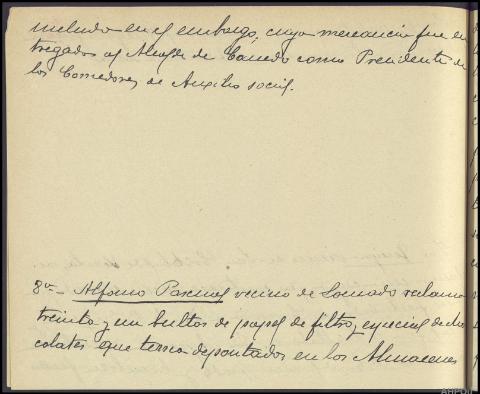 incluido en el embargo, cuya mercancía fue en
tregados al Alcalde de Canedo como Presidente de
los Comedores de Auxilio social.
8º.- Alfonso Pascual vecino de reclama
treinta y un bultos de papel de filtro y especial de cho
colates que tenia depositados en los Almacenes
AHPOU